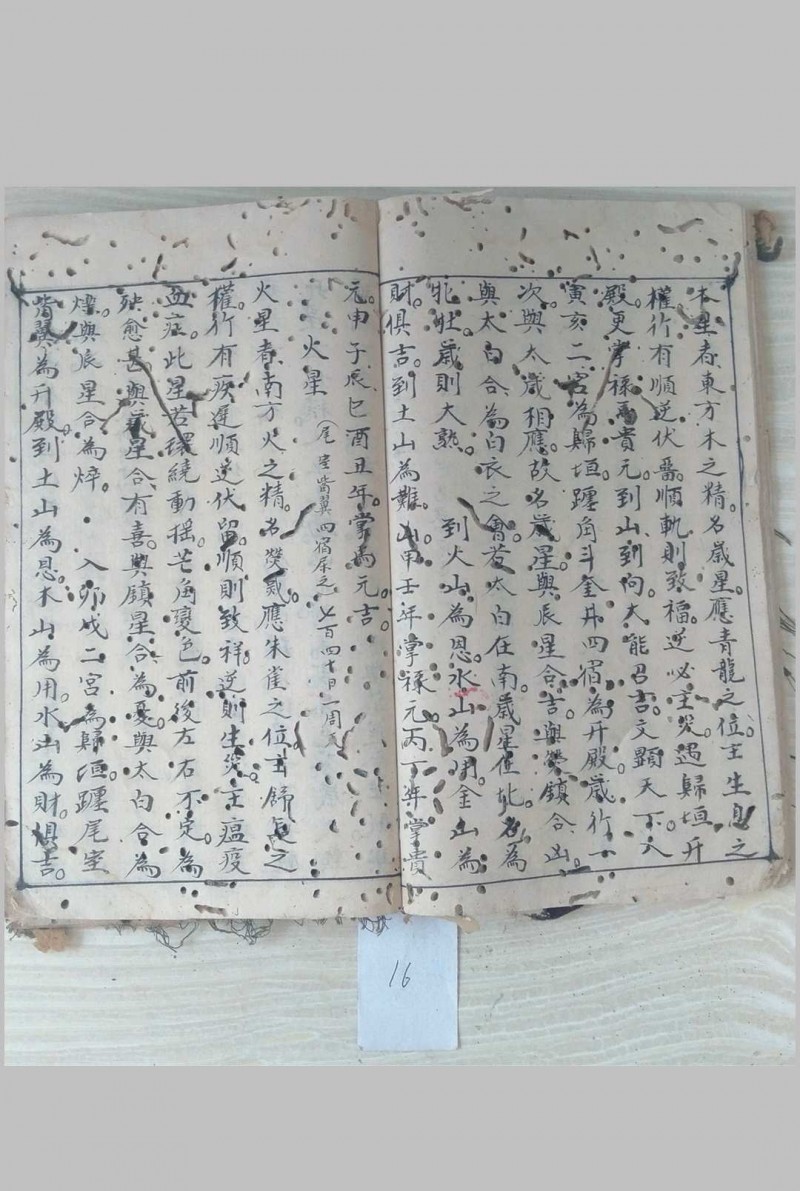 木星者東方木之精。名歲星。應青龍之位。主生息之
權。行有順逆伏留。順軌則致福。逆必主災。遇歸垣升
殿。更掌祿馬貴元。到山到向。大能召吉。文顯天下。入
寅亥二宮為歸垣。躔角斗奎井四宿為升殿。歲行一
次。與太歲相應。故名歲星。與辰星合吉。與熒鎮合凶。
與太白合為白衣之會。若太白在南。歲星在北。名為
牝牡。歲則大熟。 到火山為恩。水山為用。金山為
財。俱吉。到土山為難。凶。甲壬年掌祿元。丙丁年掌貴
元。申子辰巳酉丑年。掌馬元吉。
火星 (尾室觜翼四宿屬之)七百四十日一周天
火星者。南方火之精。名熒惑。應朱雀之位。主舒長之
權。行有疾遲順逆伏留。順則致祥。逆則生災。主瘟疫
血症。此星若環繞動搖。芒角變色。前後左右不定。為
殃愈甚。與歲星合有喜。與鎮星合為憂。與太白合為
爍。與辰星合為焠。入卯戌二宮為歸垣。躔尾室
觜翼為升殿。到土山為恩。木山為用。水山為財。俱吉。
16